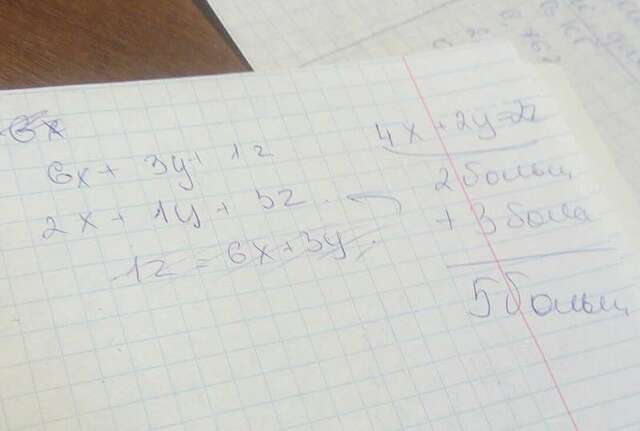 6x
6x + 3y + 1z
2x + 1y + 3z
1z = 6x + 3y
4x + 2y = 2z
2 больш
+ 3 бола
5 больш